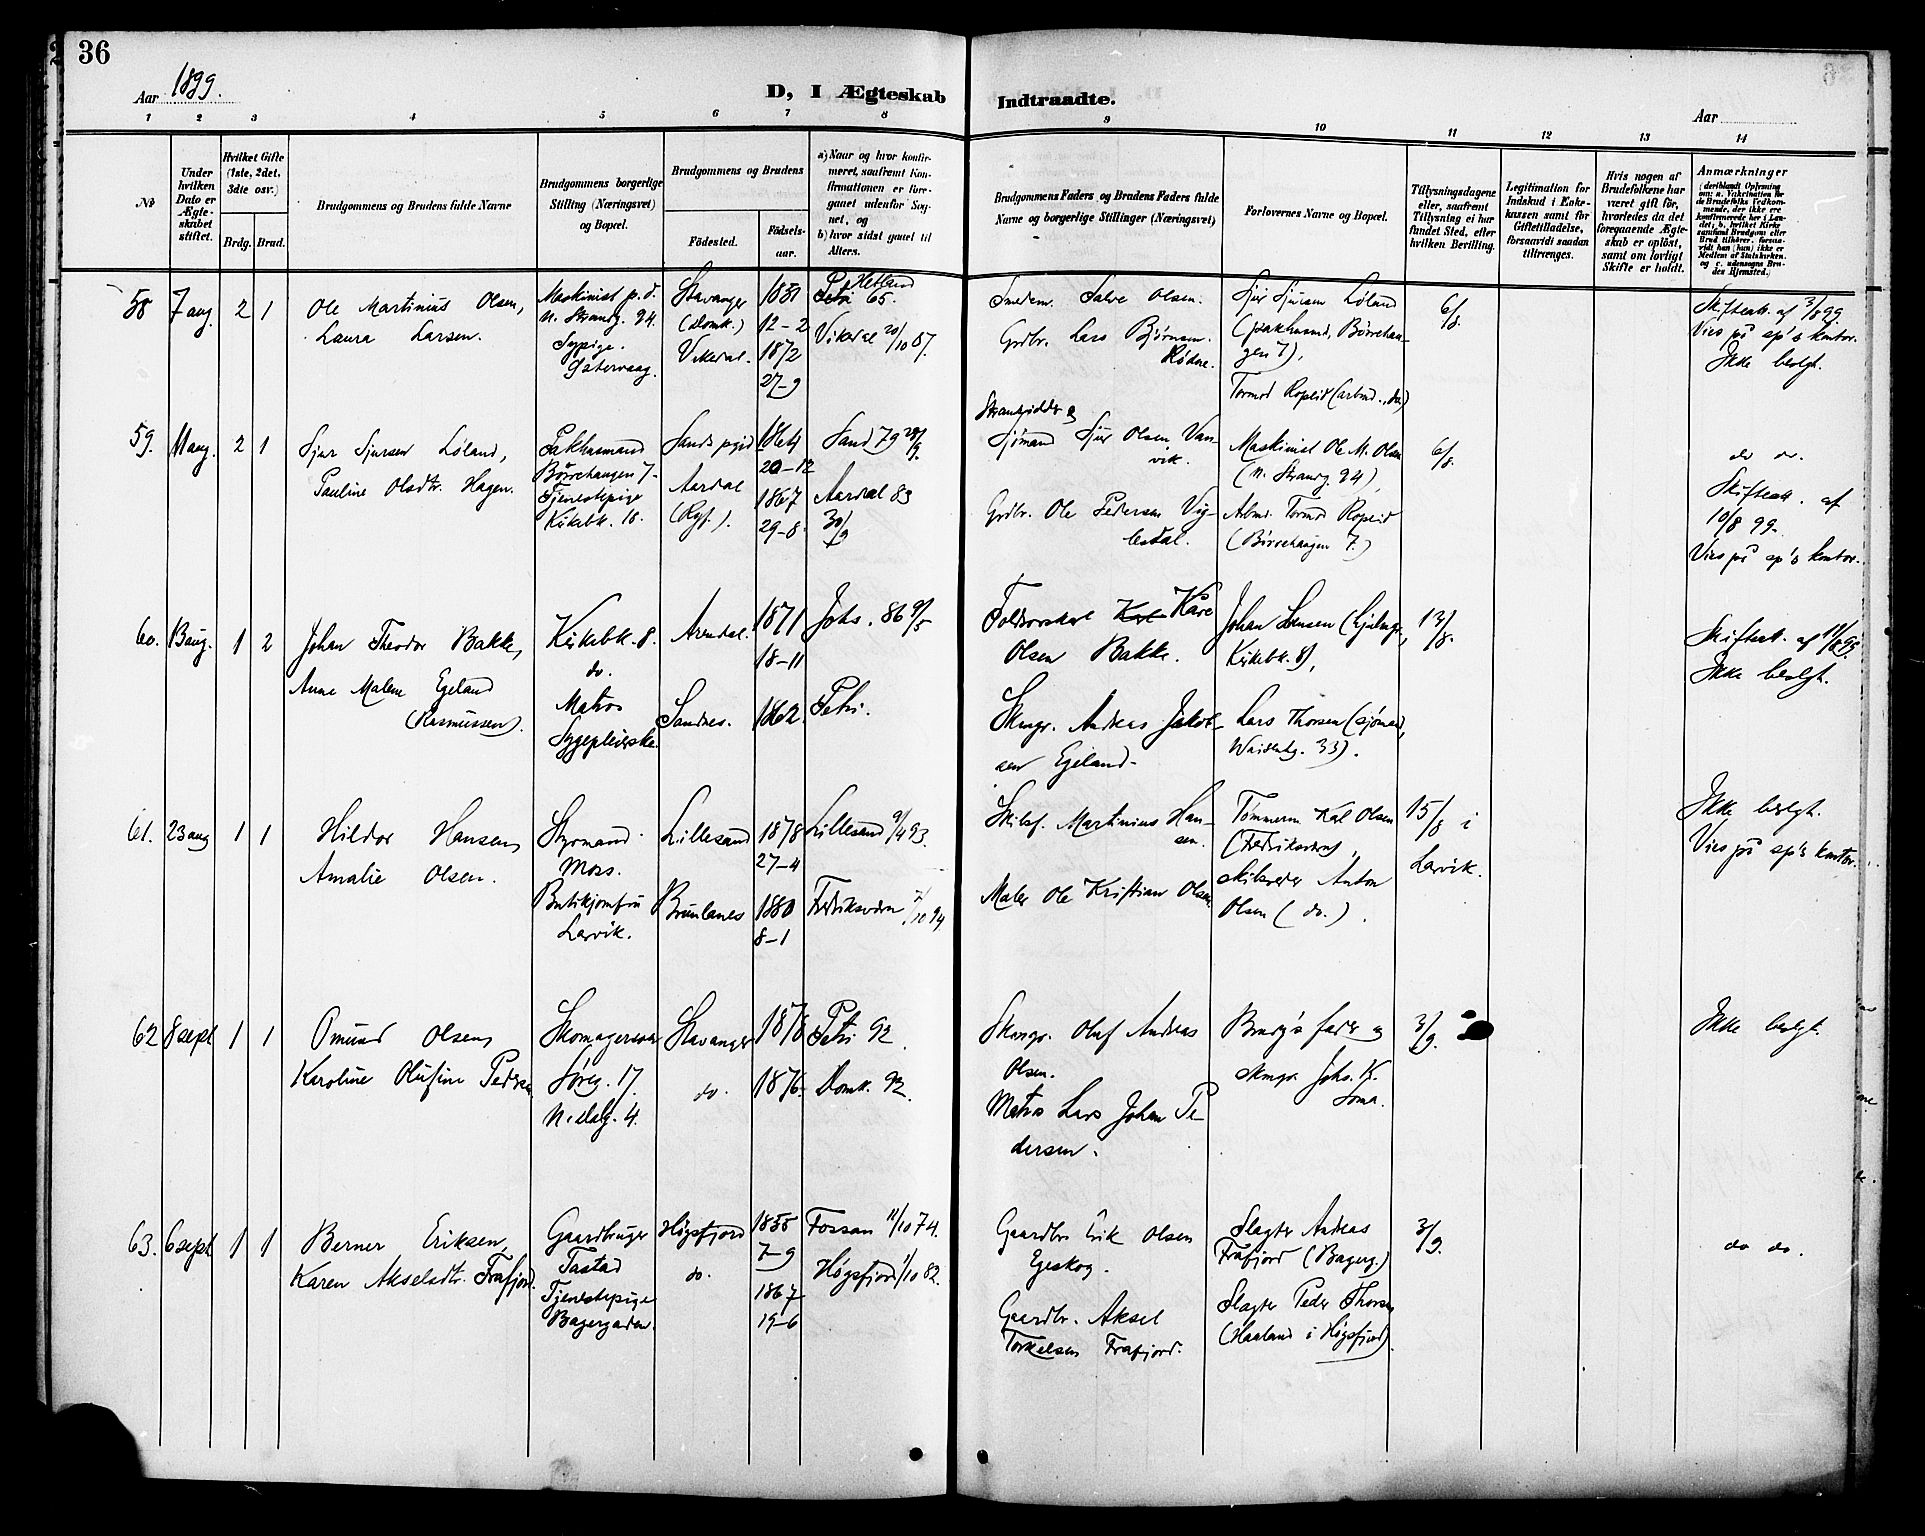 36
Aar 1899.
D, I Ægteskab Indtraadte.
Aar
1 2 3 4 5 6 7 8 9 10 11 12 13 14
No
Under hvilken Dato er Ægteskabet stiftet.
Hvilket Gifte (1ste, 2det, 3die osv.)
Brdg. Brud.
Brudgommens og Brudens fulde Navne
Brudgommens borgerlige Stilling (Næringsvei) og Bopæl.
Brudgommens og Brudens
Fødested.
Fødselsaar.
a) Naar og hvor konfirmeret, saafremt Konfirmationen er foregaaet udenfor Sognet, og
b) hvor sidst gaaet til Alters.
Brudgommens Faders og Brudens Faders fulde Navne og borgerlige Stillinger (Næringsvei)
Forlovernes Navne og Bopæl.
Tillysningsdagene eller, saafremt Tillysning ei har fundet Sted, efter hvilken Bevilling.
Legitimation for Indskud i Enkekassen samt for Giftetilladelse, forsaavidt saadan tiltrænges.
Hvis nogen af Brudefolkene har været gift før, hvorledes da det foregaaende Ægteskab er opløst, samt om lovligt Skifte er holdt.
Anmærkninger
58 7 aug. 2 1
Ole Martinius Olsen,
Laura Larsen.
Maskinist p. d.
n. Strandg. 94.
Sypige.
Stavanger
(Domk.)
Vikedal.
1851
12-2
1872
27-9
Hetland
Petri 65.
Vikedal 20/10 87.
Smedm. Salve Olsen.
Grdbr. Lars Bjørnsen
Rødne.
Sjur Sjursen Løland
(pakhusmd, Børrehaugen 7),
Tormod Ropeid (arbmd., do)
6/8.
Skifteatt. af 3/8 99.
Vies på sp's kontor.
Ikke beslgt.
59. 11 aug. 2 1
Sjur Sjursen Løland,
Pauline Olsdtr. Hagen.
Pakhusmand
Børrehaugen 7-
Tjenestepige
Kirkebk. 18.
Sands pgjd
Aardal
(Ryf.).
1864
20-12
1867
29-8.
Sand 79 28/9.
Aardal 83
30/9
Strandsidder &
Sjømand Sjur Olsen Vanvik.
Grdbr. Ole Pedersen Viglesdal.
Maskinist Ole M. Olsen
(n. Strandg. 94),
Arbmd. Tormod Ropeid
(Børrehaugen 7.)
6/8.
do do.
Skifteatt. af
10/8 99.
Vies på sp's kontor.
60. 13 aug. 1 2
Johan Theodor Bakke,
Anne Malene Egeland
(Rasmussen).
Kirkebk. 8.
do.
Matros
Sygepleierske.
Arendal.
Sandnes.
1871
18-11
1862.
Johs. 86 9/5
Petri.
Toldvorskarl Kåre
Olsen Bakke.
Skmgr. Andreas Jakobsen Egeland-
Kirkebk. 8),
Lars Thorsen (sjømand,
Waisenhg. 33).
13/8.
Skifteatt. af 11/8 99.
Ikke beslgt.
61. 23 aug 1 1
Hildor Hansen,
Amalie Olsen.
Styrmand
Moss.
Butikjomfru
Larvik.
Lillesand
Brunlanes
1878
27-4
1880
8-1
Lillesand 9/4 93.
Fredriksværn 7/10 94
Skibsf. Martinius Hansen.
Maler Ole Kristian Olsen.
Tømmerm. Karl Olsen
(Fredriksværn),
skibsreder Anton
Olsen (do.).
15/8 i
Larvik.
Ikke beslgt.
Vies på sp's kontor.
62 8 sept 1 1
Omund Olsen,
Karoline Olufine Pedersen
Skomagersvend
Søreg. 17.
N. dalg. 4.
Stavanger
do.
1878
1876.
Petri 92.
Domk. 92.
Skmgr. Oluf Andreas
Olsen.
Matros Lars Johan Pedersen.
Brudg's fader og
skmgr. Johs. K.
Soma.
3/9.
Ikke beslgt.
63. 6 sept 1 1
Berner Eriksen,
Karen Akselsdtr. Frafjord.
Gaardbruger
Tastad
Tjenestepige
Bagergaden.
Høgsfjord
do.
1858
7-9
1867
19-6
Fossan 11/10 74.
Høgsfjord 1/10 82.
Gaardbr. Erik Olsen
Egeskog.
Gaardbr. Aksel
Torkelsen Frafjord.
Slagter Andreas
Frafjord (Bagerg.)
Slagter Peder Thorsen
(Haaland i Høgsfjord).
3/9.
do do.